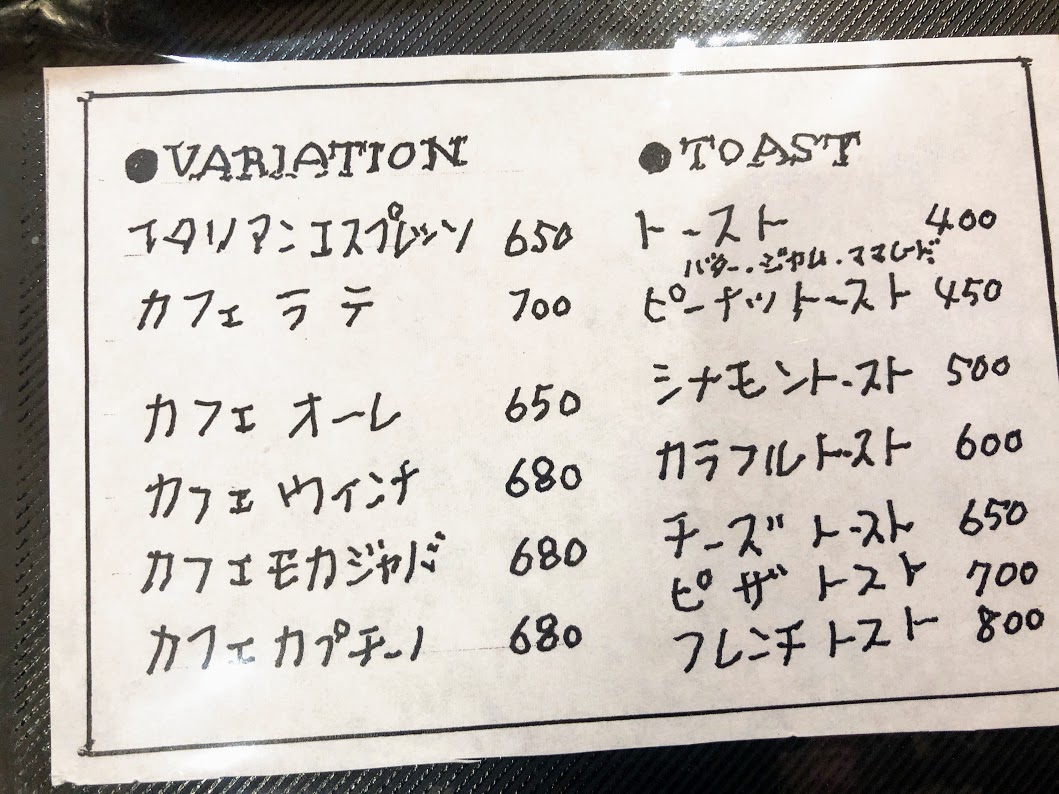 ●VARIATION
イタリアンエスプレッソ 650
カフェ ラテ 700
カフェ オーレ 650
カフェ ウィンナ 680
カフェ モカジャバ 680
カフェ カプチーノ 680
●TOAST
トースト 400
バター・ジャム・ママレード
ピーナッツトースト 450
シナモントースト 500
カラフルトースト 600
チーズ トースト 650
ピザ トースト 700
フレンチ トースト 800